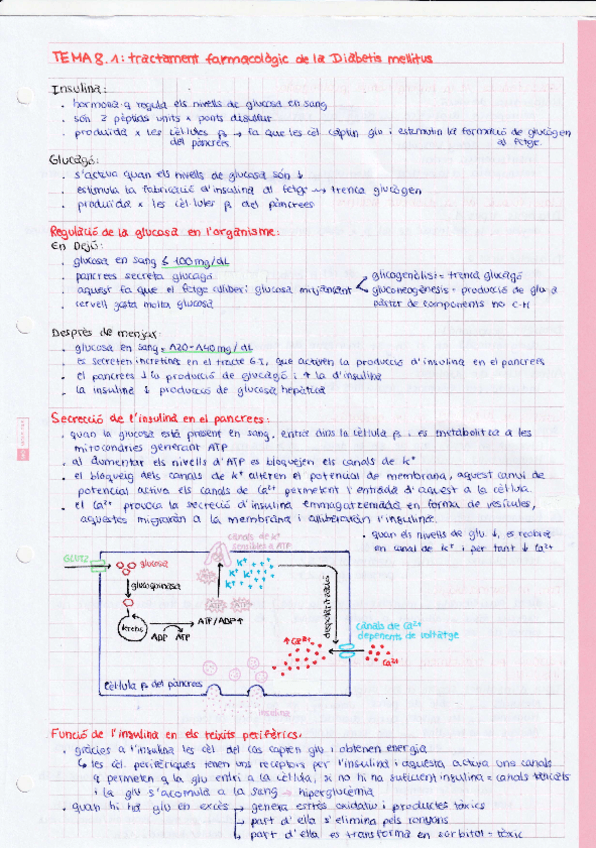 TEMA 8.1: tractament farmacològic de la Diabetis mellitus
Insulina:
. hormona q regula els nivells de glucosa en sang
. són 2 pèptids units x ponts disulfur
. produïda x les cèl·lules β → fa que les cèl captin glu i estimulin la formació de glucògen
del pàncrees
al fetge.
Glucagó:
. s'activa quan els nivells de glucosa són ↓
. estimula la fabricació d'insulina al fetge → trenca glucògen
. produïda x les cèl·lules β del pàncrees
Regulació de la glucosa en l'organisme:
En Dejú:
. glucosa en sang ≤ 100mg/dL
. pancrees secreta glucagó
. aquest fa que el fetge alliberi glucosa mitjançant
glicogenòlisi = trenca glucagó
gluconeogènesis = producció de glu a
partir de components no C-H
. cervell gasta molta glucosa
Després de menjar:
. glucosa en sang = 120-140mg/dL
. es secreten incretines en el tracte G.I, que activen la producció d'insulina en el pancrees
. el pancrees ↓ la producció de glucagó i ↑ la d'insulina
. la insulina ↓ producció de glucosa hepàtica
Secrecció de l'insulina en el pancrees:
. quan la glucosa està present en sang, entra dins la cèl·lula β i es metabolitza a les
mitocondries generant ATP
. al aumentar els nivells d'ATP es bloquejen els canals de K⁺
. el bloqueig dels canals de K⁺ alteren el potencial de membrana, aquest canvi de
potencial activa els canals de Ca²⁺ permetent l'entrada d'aquest a la cèl·lula.
. el Ca²⁺ provoca la secreció d'insulina emmagatzemada en forma de vesícules,
aquestes migraran a la membrana i alliberaran l'insulina.
. quan els nivells de glu ↓, es reobre
en canal de K⁺ i per tant ↓ Ca²⁺
canals de K⁺
sensibles a ATP
GLUT2
glucosa
glucoquinasa
K⁺ K⁺
K⁺ K⁺
K⁺ K⁺
ATP
ATP
krebs
ADP ATP
ATP/ADP↑
despolarització
↑Ca²⁺
canals de Ca²⁺
depenents de voltatge
Ca²⁺
cèl·lula β del pàncrees
insulina
Funció de l'insulina en els teixits perifèrics.
. gràcies a l'insulina les cèl del cos capten glu i obtenen energia
↳ les cèl. perifèriques tenen uns receptors per l'insulina i aquesta activa uns canals
q permeten q la glu entri a la cèl·lula, si no hi ha suficient insulina = canals tancats
i la glu s'acumula a la sang → hiperglucèmia
. quan hi ha glu en excés → genera estrès oxidatiu i productes tòxics
→ part d'ella s'elimina pels ronyons
→ part d'ella es transforma en sorbitol = tòxic